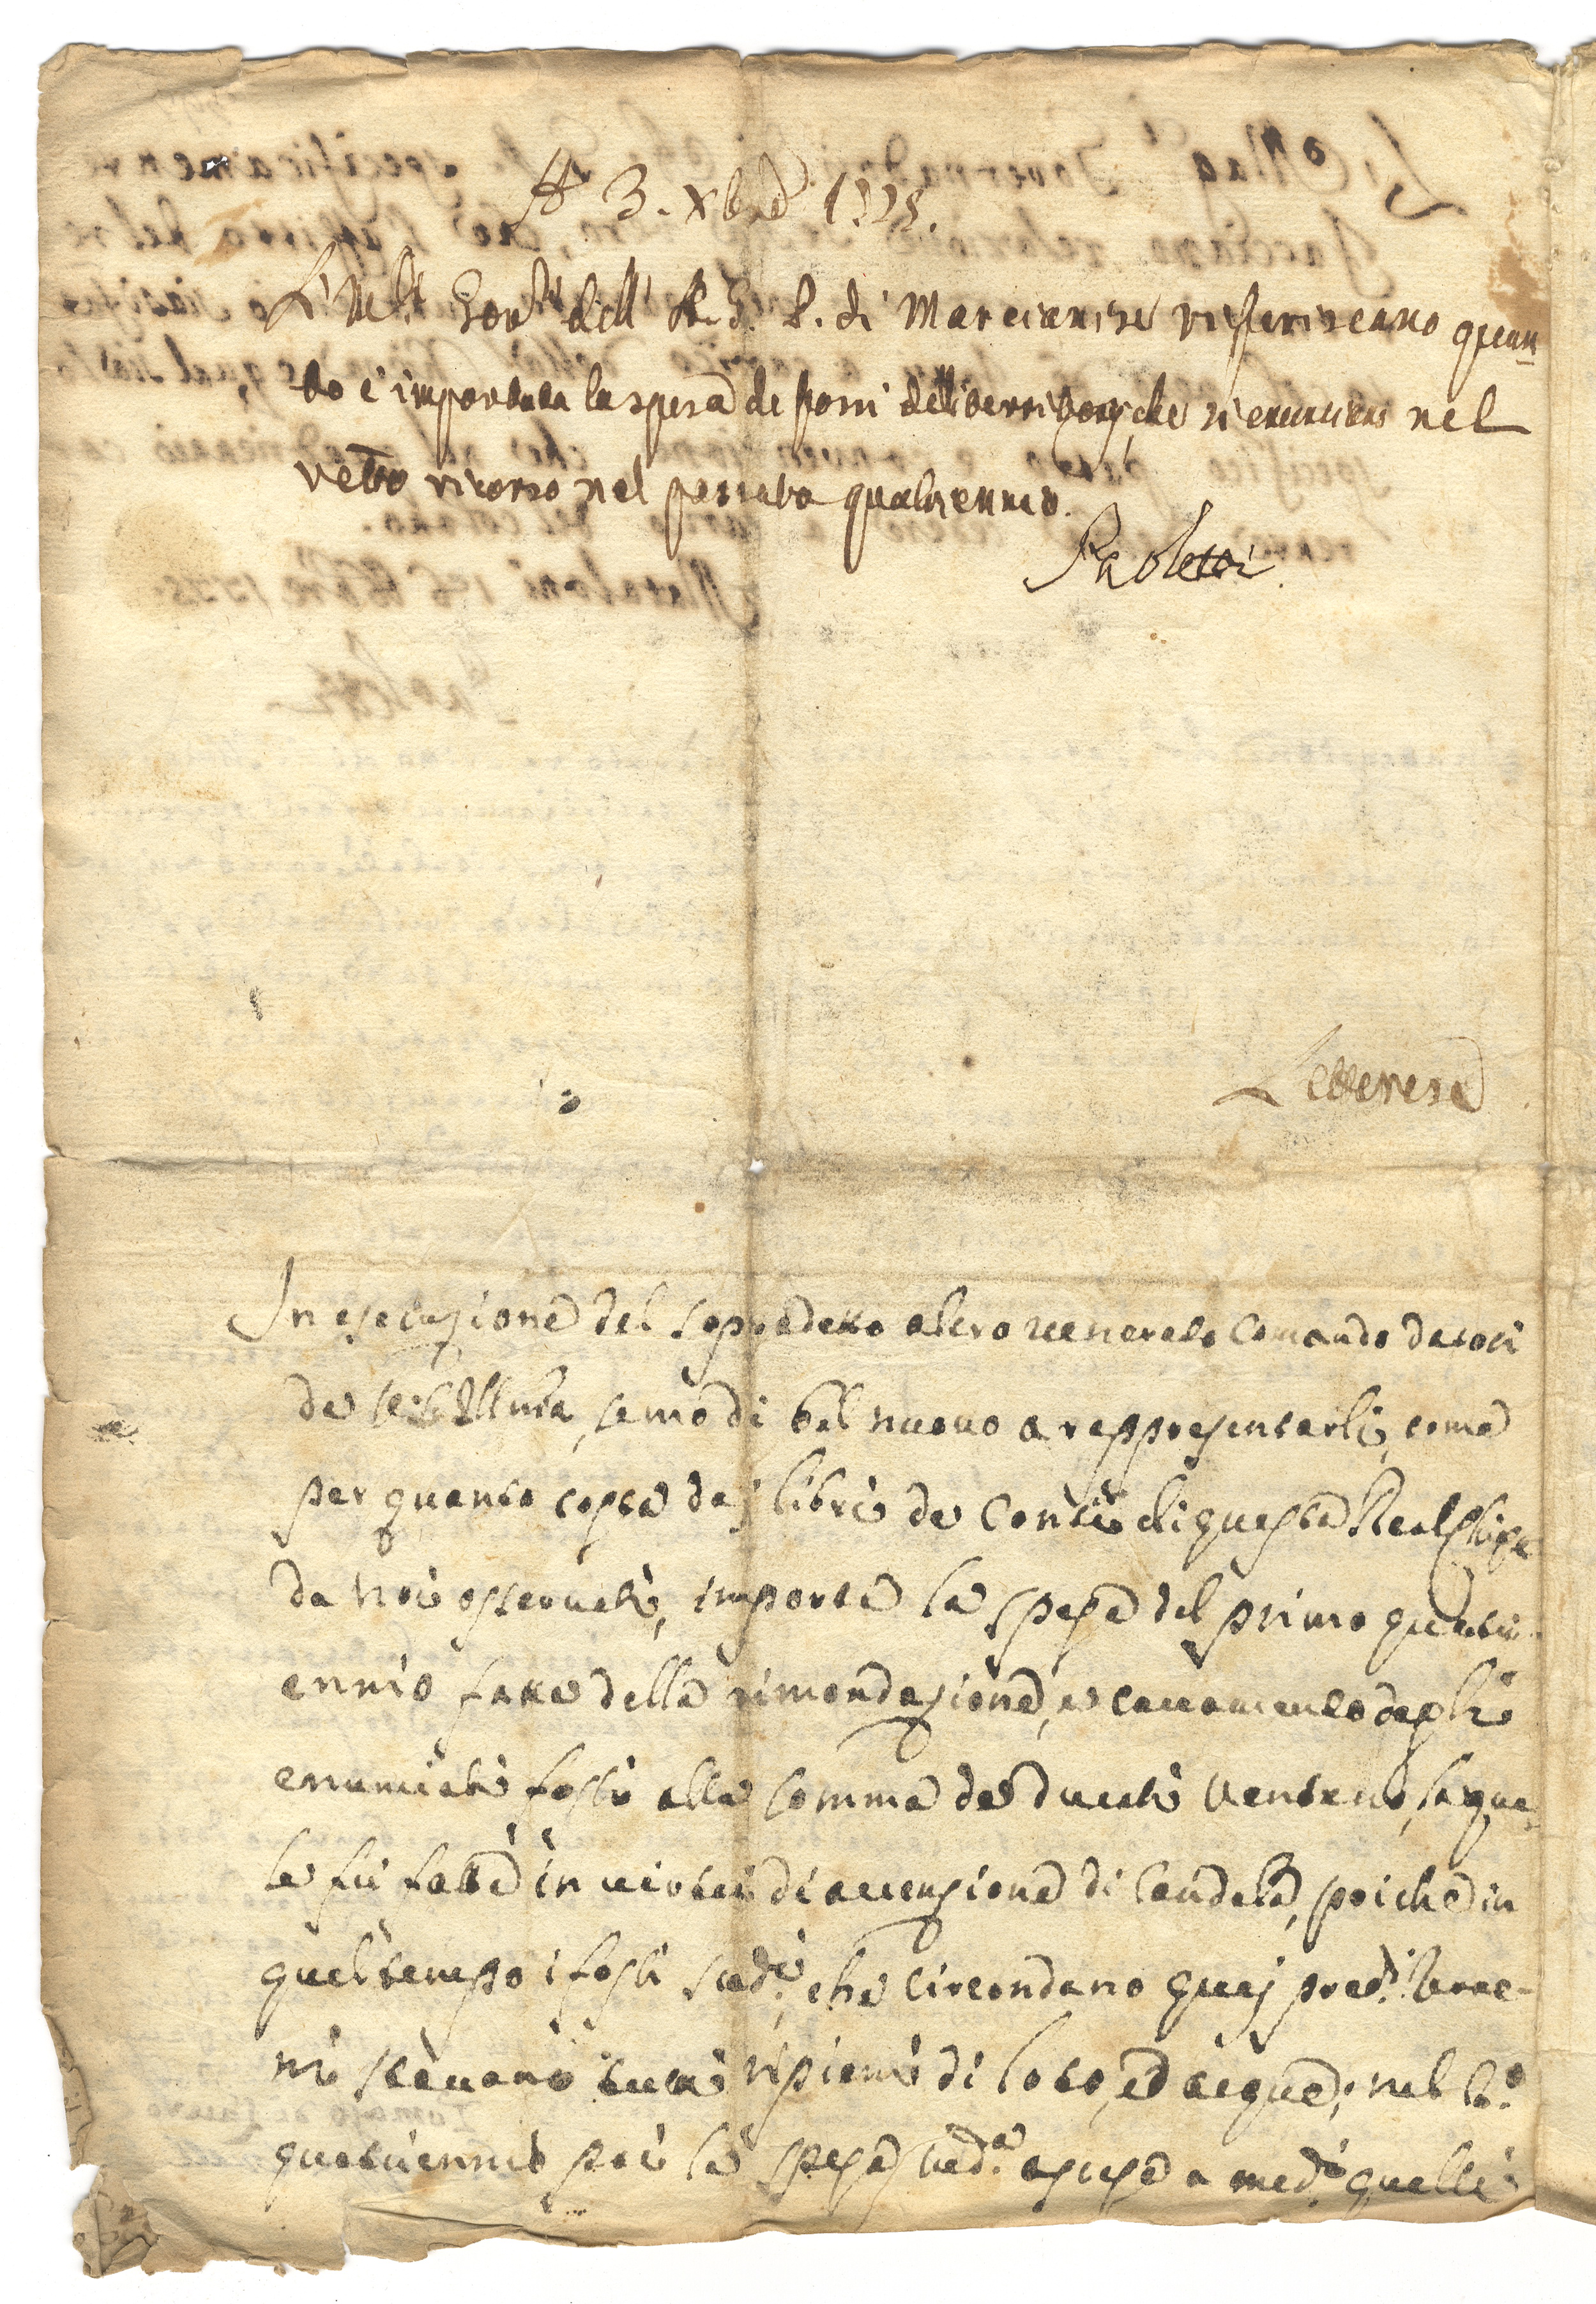 A 3. Xbre 1775.
Li M.ci Gov.ri dell' A. G. P. di Marcianise riferiscano quan=
to è importata la spesa de fossi delli territorj, che si enunciano nel
retro ricorso nel passato quatriennio.
Paoletti
Letterese
In esecuzione del sopradetto altro venerato Comando datoci
da V.S. Ill.ma, semo di bel nuovo a rappresentarli, come
per quanto costa da j libri de Conti di questa Real Chiesa
da noi osservati, importa la spesa del primo quatri-
ennio fatta della rimondazione, e cavamento degli
enunciati fossi alla somma de ducati ventuno, la qua=
le fu fatta in virtù di accenzione di candela, poiche in
quel tempo i fossi sud.i, che circondano quej pred.i terre-
ni stavano tutti ripieni di loto, ed acqua; nel 2.o
quatriennio poi la spesa sud.a ascese a med.i quelli